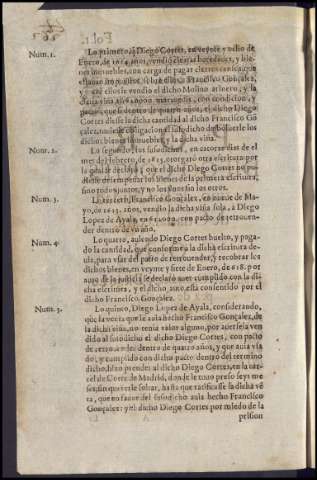 Fol. 1.
Num. 1.
Lo primero, q̃ Diego Cortes, en veynte y ocho de
Enero, de 1612. años, vendio ciertas heredades, y bie-
nes inmuebles, con carga de pagar ciertos censos que
sobre ellos a Francisco Gonçalez,
y con ellos le vendio el dicho Molino
con condicion,
dentro de quatro años, el dicho Diego
Cortes diesse la dicha cantidad al dicho Francisco Gõ
çalez, obligacion el susodicho de boluerle los
dichos bienes inmuebles, y la dicha viña.
Num. 2.
Lo segundo, los susodichos, en catorze dias de el
mes de Febrero, de 1613. otorgarõ otra escritura por
la qual se declarò, que el dicho Diego Cortes no pu
diesse desempeñar los bienes de la primera escritura,
sino todos juntos, y no los vnos sin los otros.
Num. 3.
Lo tercero, Francisco Gonçalez, en nueue de Ma-
yo, de 1615. años, vendio la dicha viña sola, a Diego
Lopez de Ayala, con pacto de retrouender
dentro de vn año.
Num. 4.
Lo quarto, auiendo Diego Cortes buelto, y paga-
do la cantidad, que contiene la dicha escritura de
para vsar del pacto de retrouender, y recobrar los
dichos bienes, en veynte y siete de Enero, de 618. por
auto de la justicia se declarò auer cumplido con la di-
cha escritura, y el dicho auto, està consentido por el
dicho Francisco Gonçalez.
Num. 5.
Lo quinto, Diego Lopez de Ayala, considerando,
que la venta que le auia hecho Francisco Gonçalez, de
la dicha viña, no tenia valor alguno, por auersela ven
dido al susodicho el dicho Diego Cortes, con pacto
de retrouender dentro de quatro años, y que auia vsa
do, y cumplido con dicho pacto dentro del termino
dicho, hizo prender al dicho Diego Cortes, en la car-
cel de Corte de Madrid, donde le tuuo preso seys me-
ses, sin quererle soltar, hasta que ratificasse la dicha vẽ
ta, que en fauor del susodicho auia hecho Francisco
Gonçalez: y el dicho Diego Cortes por miedo de la
prision